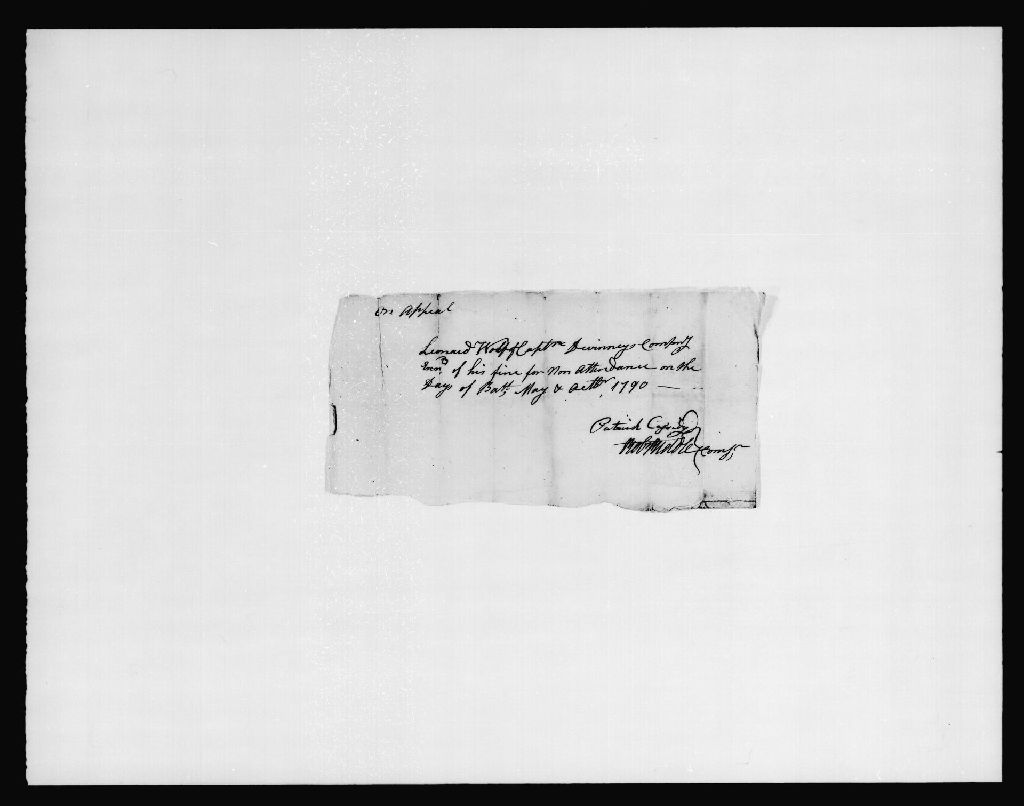 On Appeal
Leonard Wolf Capt Dwinneys Company
Exond of his fine for Non Attendance on the
Days of Batt. May & Octbr 1790
Patrick
Comrs